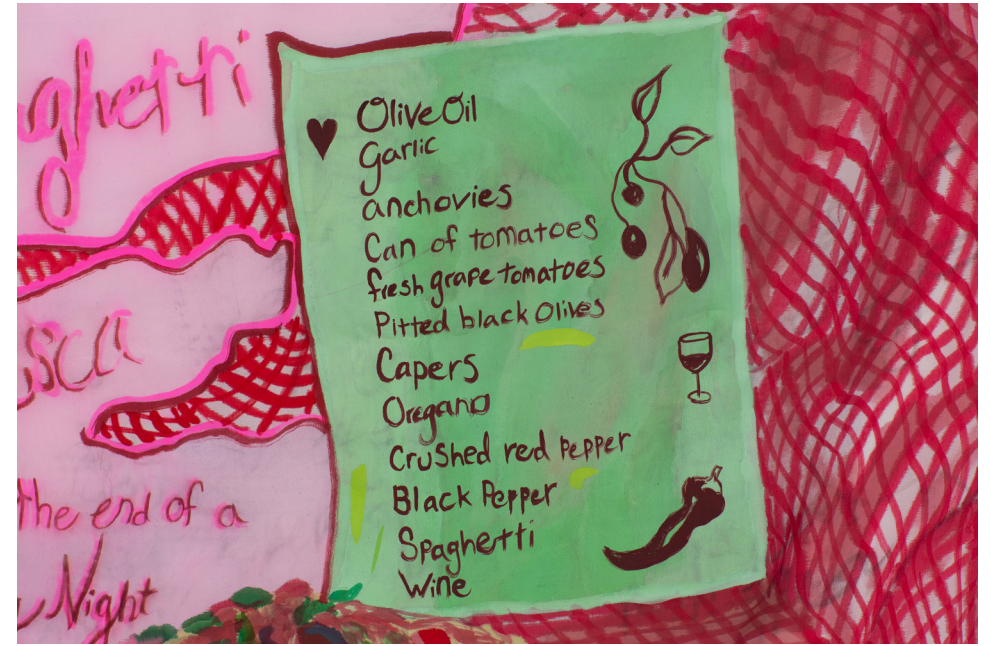 ghetti
sca
the end of a
Night
Olive Oil
Garlic
anchovies
Can of tomatoes
fresh grape tomatoes
Pitted black Olives
Capers
Oregano
Crushed red Pepper
Black Pepper
Spaghetti
Wine